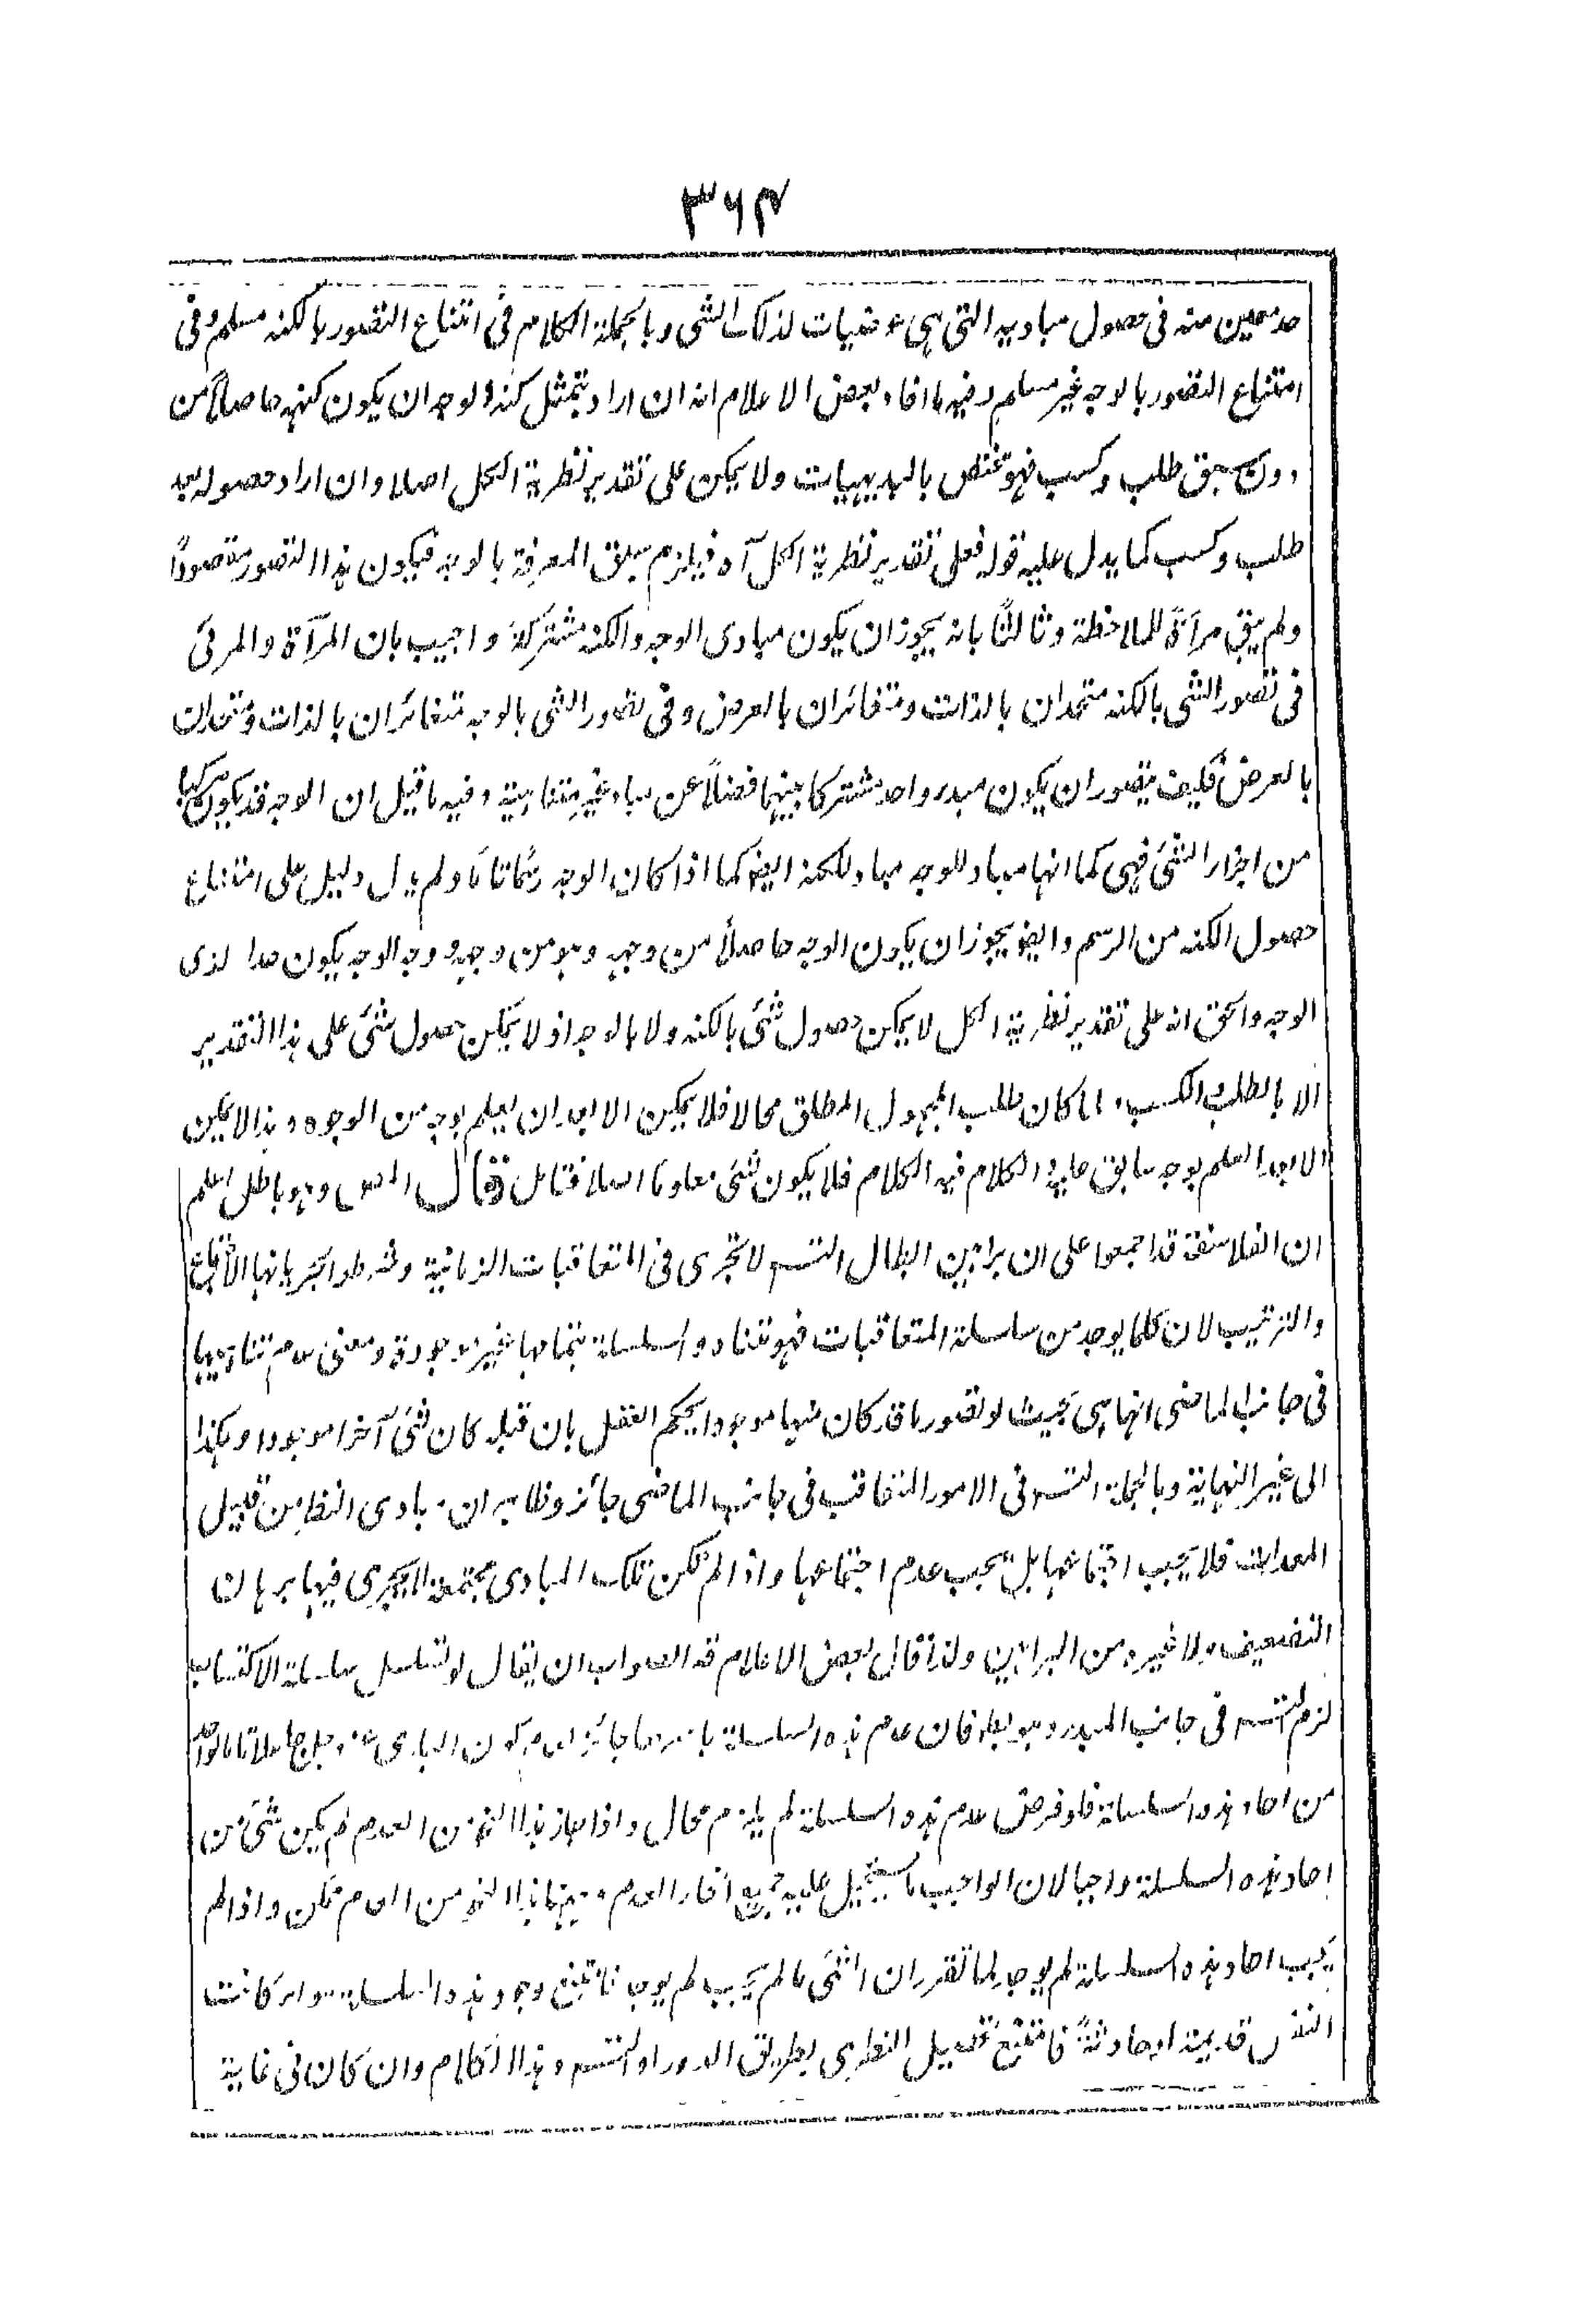 ۳۶۴
حد معين منه فى حصول مباديه التى هى عرضيات لذلك الشئ وبالجملة الكلام فى امتناع التصور بالكنه مسلم وفى
امتناع التصور بالوجه غير مسلم وفيه ما افاد بعض الاعلام انه ان اراد بتمثل كنه الوجه ان يكون كنهه حاصلاً من
دون سبق طلب وكسب فهو مختص بالبديهيات ولا يمكن على تقدير نظرية الكل اصلا وان اراد حصوله بعد
طلب وكسب كما يدل عليه قوله فعلى تقدير نظرية الكل آه فيلزم سبق المعرفة بالوجه فيكون هذا التصور مقصوداً
ولم يبق مرآةً للملاحظة وثالثًا بانه يجوز ان يكون مبادى الوجه والكنه مشتركة واجيب بان المرآة والمرئى
فى تصور الشئ بالكنه متحدان بالذات ومتغائران بالعرض وفى تصور الشئ بالوجه متغائران بالذات ومتحدان
بالعرض فكيف يتصور ان يكون مبدء واحد مشتركا بينهما فضلاً عن مباد غير متناهية وفيه ما قيل ان الوجه قد يكون مركبا
من اجزاء الشئ فهى كما انها مباد للوجه مباد للكنه ايضا كما اذا كان الوجه رسمًا تامًا ولم يدل دليل على امتناع
حصول الكنه من الرسم وايضا يجوز ان يكون الوجه حاصلاً من وجهه وهو من وجهه ووجه الوجه يكون حدا لذى
الوجه والحق انه على تقدير نظرية الكل لا يمكن حصول شئ بالكنه ولا بالوجه اذ لا يمكن حصول شئ على هذا التقدير
الا بالطلب والكسب ولما كان طلب المجهول المطلق محالا فلا يمكن الا بعد ان يعلم بوجه من الوجوه وهذا لا يمكن
الا بعد العلم بوجه سابق عليه والكلام فيه الكلام فلا يكون شئ معلوما اصلا فتامل قال المص وهو باطل اعلم
ان الفلاسفة قد اجمعوا على ان براهين ابطال التسـ لا تجرى فى المتعاقبات الزمانية وشرطوا لجريانها الاجتماع
والترتيب لان كلما يوجد من سلسلة المتعاقبات فهو متناه والسلسلة بتمامها غير موجودة ومعنى عدم تناهيها
فى جانب الماضى انها هى بحيث لو تصور ما قد كان منها موجودا يحكم العقل بان قبله كان شئ آخر موجودا وهكذا
الى غير النهاية وبالجملة التسـ فى الامور المتعاقب فى جانب الماضى جائز وظاهر ان مبادى النظر من قبيل
المعدات فلا يجب اجتماعها بل يجب عدم اجتماعها واذا لم تكن تلك المبادى مجتمعة لا يجرى فيها برهان
التضعيف ولا غيره من البراهين ولذا قال بعض الاعلام قد الصواب ان يقال لو تسلسل سلسلة الاكتساب
لزم التسـ فى جانب المبدء وهو باطل فان عدم هذه السلسلة باسرها جائز لعدم كون البارى عز وجل جاعلا تاما لواحد
من احاد هذه السلسلة فلو فرض عدم هذه السلسلة لم يلزم محال واذا جاز هذا النحو من العدم لم يكن شئ من
احاد هذه السلسلة واجبا لان الواجب ما يستحيل عليه جميع انحاء العدم وههنا هذا النحو من العدم ممكن واذا لم
يجب احاد هذه السلسلة لم يوجد لما تقرر ان الشئ ما لم يجب لم يوجد فامتنع وجود هذه السلسلة سواء كانت
النفس قديمة او حادثةً فامتنع تحصيل النظرى بطريق الدور او التسـ وهذا الكلام وان كان فى غاية